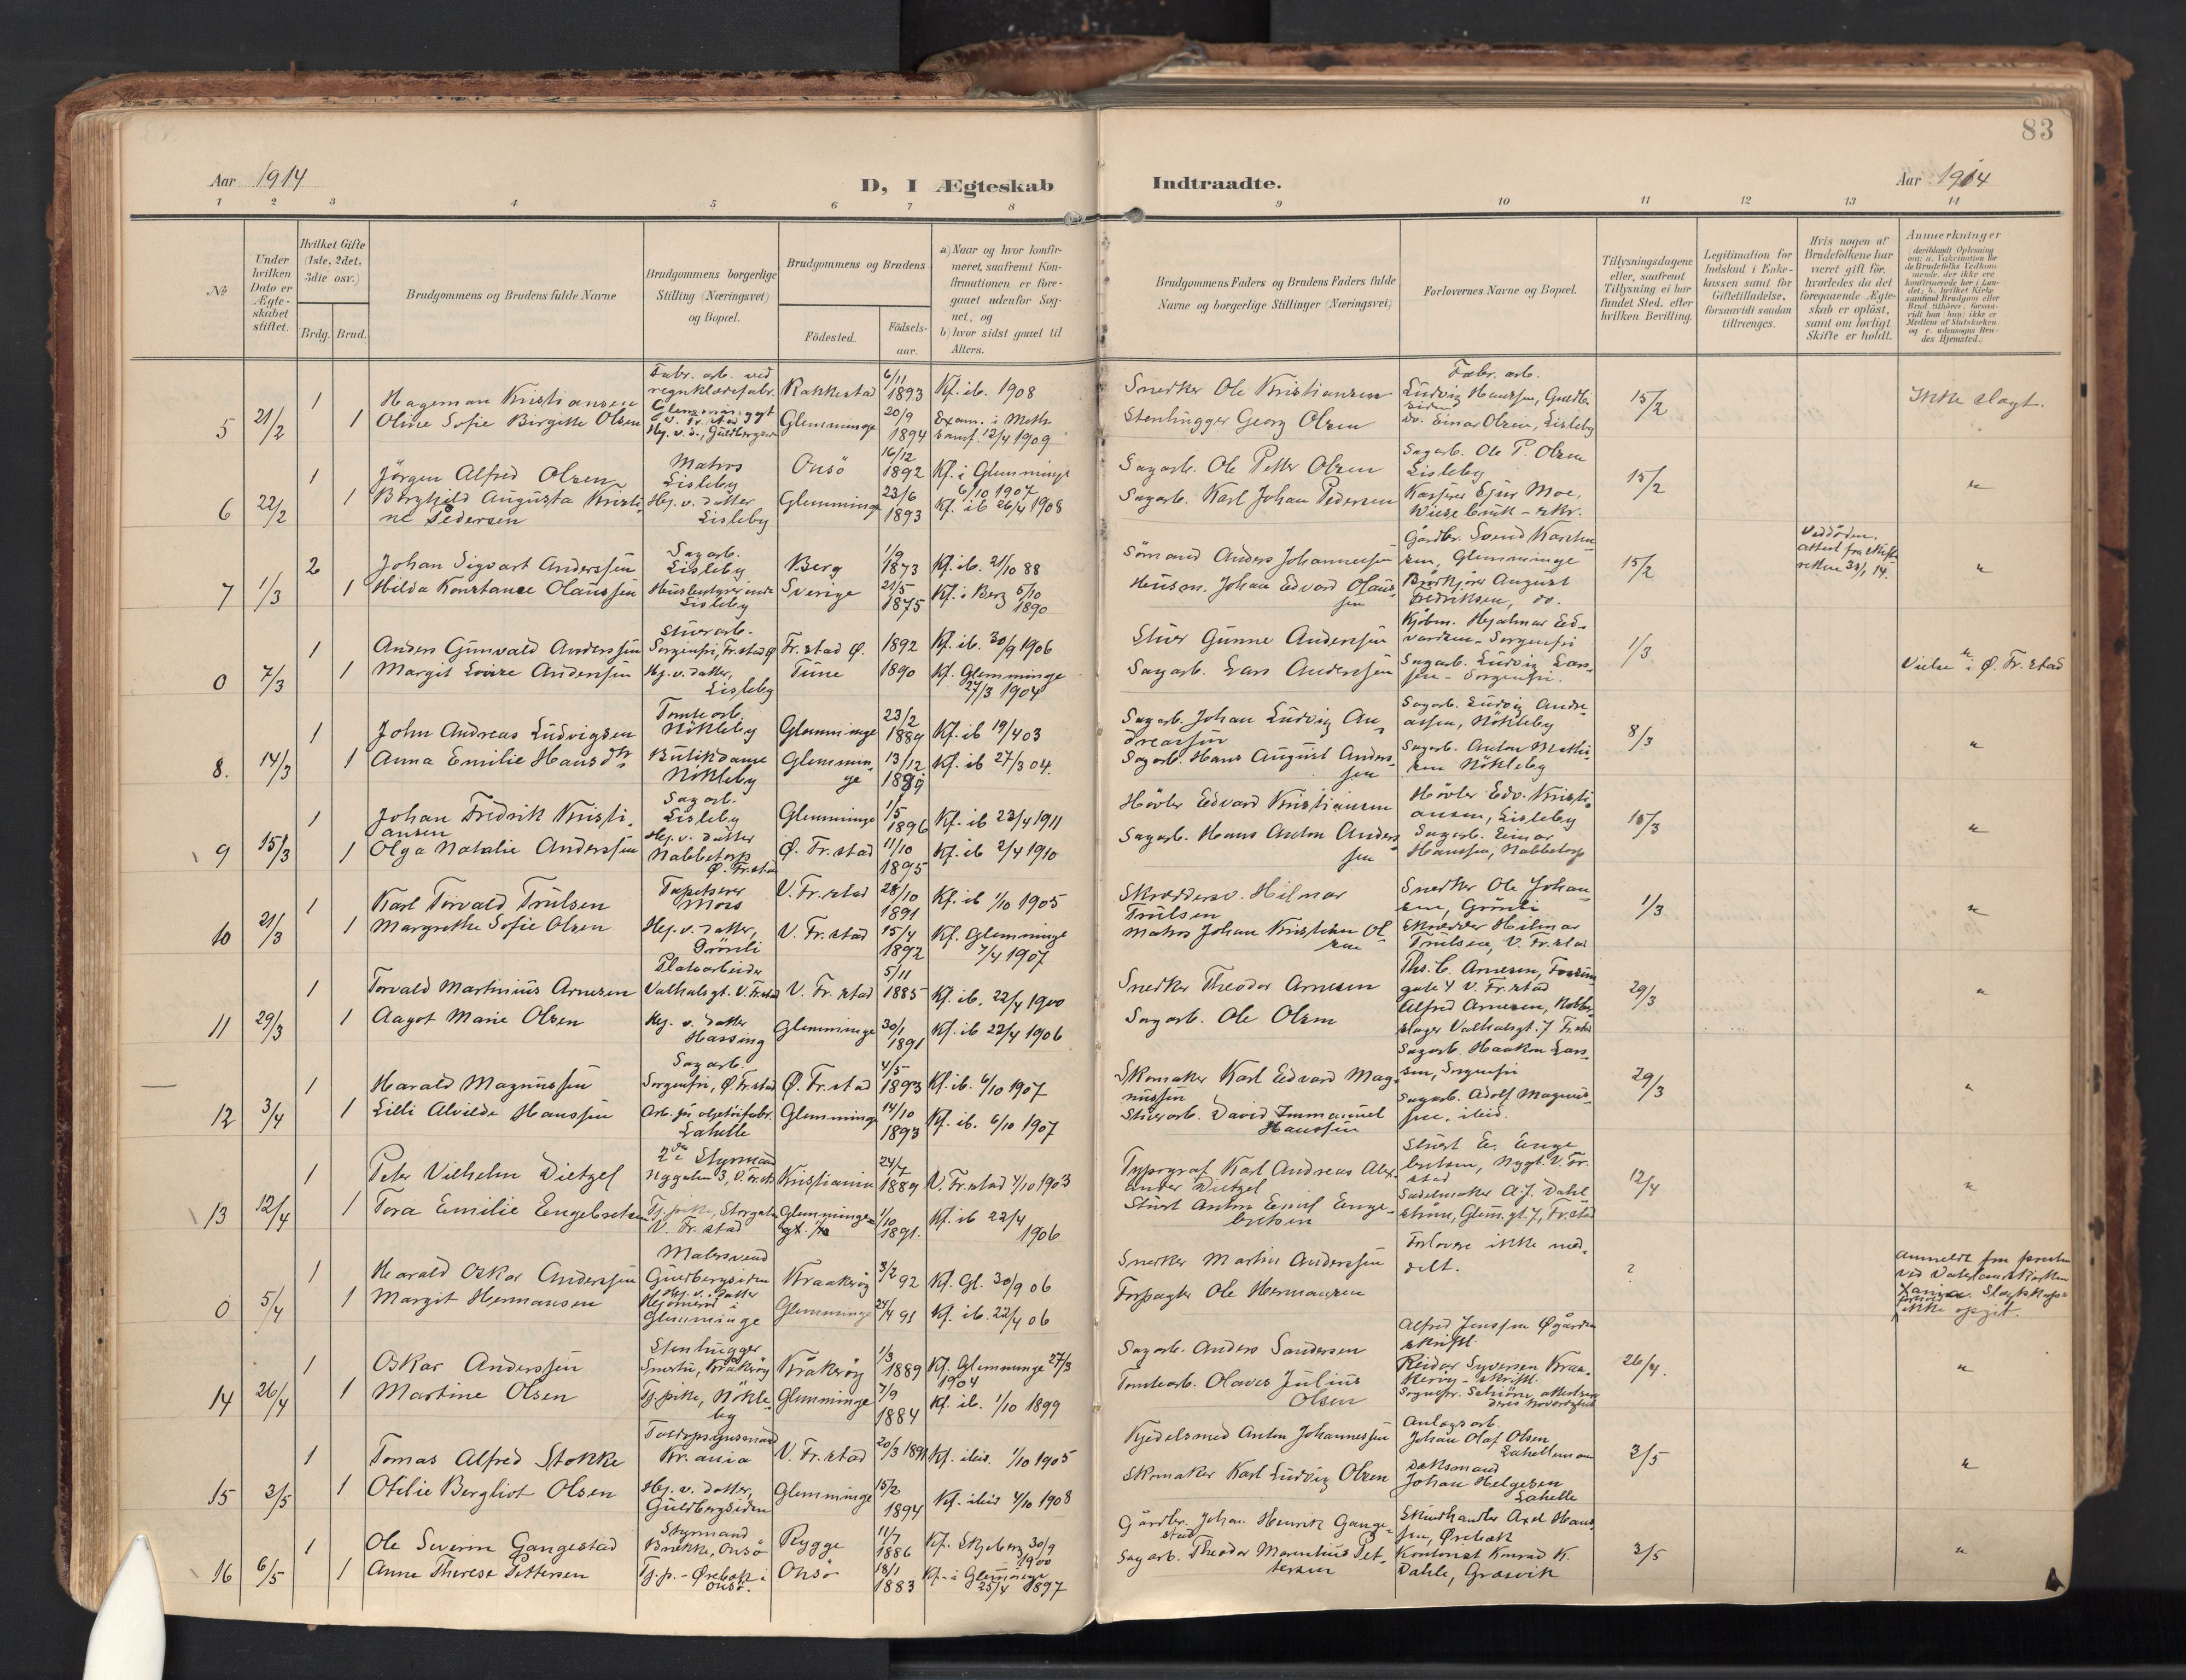 83
Aar 1914
D, I Ægteskab
Indtraadte.
Aar 1914
1 2 3 4 5 6 7 8 9 10 11 12 13 14
No
Under hvilken Dato er Ægte-skabet stiftet.
Hvilket Gifte (1ste, 2det, 3die osv.)
Brdg. Brud.
Brudgommens og Brudens fulde Navne
Brudgommens borgerlige Stilling (Næringsvei) og Bopæl.
Brudgommens og Brudens
Födested.
Födsels-aar.
a) Naar og hvor konfir-meret, saafremt Kon-firmationen er fore-gaaet udenfor Sog-net, og
b) hvor sidst gaaet til Alters.
Brudgommens Faders og Brudens Faders fulde Navne og borgerlige Stillinger (Næringsvei)
Forlovernes Navne og Bopæl.
Tillysningsdagene eller, saafremt Tillysning ei har fundet Sted, efter hvilken Bevilling.
Legitimation for Indskud i Enke-kassen samt for Giftetilladelse, forsaavidt saadan tiltrænges.
Hvis nogen af Brudefolkene har været gift för, hvorledes da det foregaaende Ægte-skab er oplöst, samt om lovligt Skifte er holdt.
Anmærkninger
5 21/2
1 Hageman Kristiansen Fabr. arb. ved regnklædefabr. Rakkestad 6/11 1893 Kf. ib. 1908 Snedker Ole Kristiansen Fabr. arb. Ludvig Hanssen, 15/2 Ikke slegt.
1 Oline Sofie Birgitte Olsen Glemminge 20/9 1894 Exam. i Meth. samf. 12/4 1909 Stenhugger Georg Olsen do. Einar Olsen, Lisleby
6 22/2
1 Jörgen Alfred Olsen Matros Lisleby Onsö 16/12 1892 Kf. i Glemminge 6/10 1907 Sagarb. Ole Petter Olsen Sagarb. Ole P. Olsen Lisleby 15/2 "
1 Borghild Augusta Kristine Pedersen Hj. v. datter Lisleby Glemminge 23/6 1893 Kf. ib 26/4 1908 Sagarb. Karl Johan Pedersen Kasserer Ejnar Moe,
7 1/3
2 Johan Sigvart Anderssen Sagarb. Lisleby Berg 1/9 1873 Kf. ib. 21/10 88 Sömand Anders Johannessen Gårdbr. Svend Karlsen, Glemminge 15/2 "
1 Hilda Konstance Olaussen Husbestyrerinde Lisleby Sverige 21/5 1875 Kf. i Berg 5/10 1890 Husm. Johan Edvard Olaussen August Fredriksen, do.
0 7/3
1 Anders Gunvald Anderssen Stuerarb. Sorgenfri, Fr.stad Ø Fr.stad Ø. 1892 Kf. ib. 30/9 1906 Stuer Gunne Anderssen Kjöbm. Hjalmar Edvardsen - Sorgenfri 1/3
1 Margit Lovise Anderssen Hj. v. datter, Lisleby Tune 1890 Kf. Glemminge 27/3 1904 Sagarb. Lars Anderssen Sagarb. Ludvig Larssen - Sorgenfri. Vielse i Ø. Fr.stad
8. 14/3
1 John Andreas Ludvigsen Tomtearb. Nökleby Glemminge 23/2 1889 Kf. ib 19/4 03 Sagarb. Johan Ludvig Andreassen Sagarb. Ludvig Andreassen, Nökleby 8/3 "
1 Anna Emilie Hansdtr Butikdame Nökleby Glemminge 13/12 1889 Kf. ib 27/3 04. Sagarb. Hans August Anderssen Sagarb. Anton Mathisen Nökleby
9 15/3
1 Johan Fredrik Kristiansen Sagarb. Lisleby Glemminge 1/5 1896 Kf. ib 23/4 1911 Hövler Edvard Kristiansen Hövler Edv. Kristiansen, Lisleby 15/3 "
1 Olga Natalie Anderssen Hj. v. datter Nabbetorp Ø. Fr.stad Ø. Fr.stad 11/10 1895 Kf. ib 2/4 1910 Sagarb. Hans Anton Anderssen Sagarb. Einar Hanssen, Nabbetorp
10 21/3
1 Karl Torvald Trulsen Tapetserer Moss V. Fr.stad 28/10 1891 Kf. ib 1/10 1905 Skræddersv. Hilmar Trulsen Snedker Ole Johansen, Grönli 1/3 "
1 Margrethe Sofie Olsen Hj. v. datter, Grönli V. Fr.stad 15/4 1892 Kf. Glemminge 7/4 1907 Matros Johan Kristian Olsen Skrædder Hilmar Trulsen, V. Fr.stad
11 29/3
1 Torvald Martinius Arnesen Platearbeider Valhalsgt. V. Fr.stad V. Fr.stad 5/11 1885 Kf. ib. 22/4 1900 Snedker Theodor Arnesen Ths. C. Arnesen, gate 4 V. Fr.stad 29/3 "
1 Aagot Marie Olsen Hj. v. datter Hassing Glemminge 30/1 1891 Kf. ib 22/4 1906 Sagarb. Ole Olsen Alfred Arnesen, Valhalsgt. 7 Fr.stad
12 3/4
1 Harald Magnussen Sagarb. Sorgenfri, Ø. Fr.stad Ø. Fr.stad 4/5 1893 Kf. ib. 6/10 1907 Skomaker Karl Edvard Magnussen Sagarb. Haakon Larssen, Sorgenfri 29/3 "
1 Lilli Alvilde Hanssen Arb. på oljetöifabr. Lahelle Glemminge 14/10 1893 Kf. ib. 6/10 1907 Stuerarb. David Immanuel Hanssen Sagarb. Adolf Magnussen, ibid.
13 12/4
1 Peter Vilhelm Dietzel 2den Styrmand Nygaten 3, V. Fr.st Kristiania 24/7 1889 V. Fr.stad 4/10 1903 Typograf Karl Andreas Alexander Dietzel Stuert E. Engebretsen, Nygt. V. Fr.stad 12/4 "
1 Tora Emilie Engebretsen Tj. pike, Storgaten V. Fr.stad Glemminge 1/10 1891. Kf. ib 22/4 1906 Stuert Anton Emil Engebretsen Sadelmaker A. J. Dahlström, Glem. gt. 7, Fr.stad
0 5/4
1 Harald Oskar Anderssen Malersvend Gudbergsiden Kraakeröy 3/2 92 Kf. Gl. 30/9 06 Snedker Martin Anderssen Forlovere ikke meddelt. ?
1 Margit Hermansen Hj. v. datter Glemminge Glemminge 24/4 91 Kf. ib. 22/4 06 Forpagter Ole Hermansen ikke opgit.
14 26/4
1 Oskar Anderssen Stenhugger Kråkeröy Kråkeröy 1/3 1889 Kf. Glemminge 27/3 1904 Sagarb. Anders Sandersen Alfred Jenssen Øgården skriftl. 26/4. "
1 Martine Olsen Tj. pike, Nökleby Glemminge 7/9 1884 Kf. ib. 1/10 1899 Tomtearb. Olaves Julius Olsen Reidar Syversen Kraakeröy - skriftl.
15 3/5
1 Tomas Alfred Stokke Kr.ania V. Fr.stad 20/3 1891 Kf. ibid. 1/10 1905 Kjedelsmed Anton Johannessen Anlegsarb. Johan Olaf Olsen 3/5 "
1 Otilie Bergliot Olsen Hj. v. datter, Gudbergsiden Glemminge 15/2 1894 Kf. ibid 4/10 1908 Skomaker Karl Ludvig Olsen Johan Helgesen Lahelle
16 6/5
1 Ole Severin Gangestad Styrmand Brekke, Onsö Rygge 11/7 1886 Kf. Skjeberg 30/9 1900 Gårdbr. Johan Henrik Gangestad Skindhandler Axel Hanssen, Ørebæk 3/5 "
1 Anne Therese Pettersen Tj. p. - Ørebæk i Onsö. Onsö 18/1 1883 Kf. i Glemminge 25/4 1897 Sagarb. Theodor Marentius Pettersen Kontorist Konrad K. Dahle, Græsvik